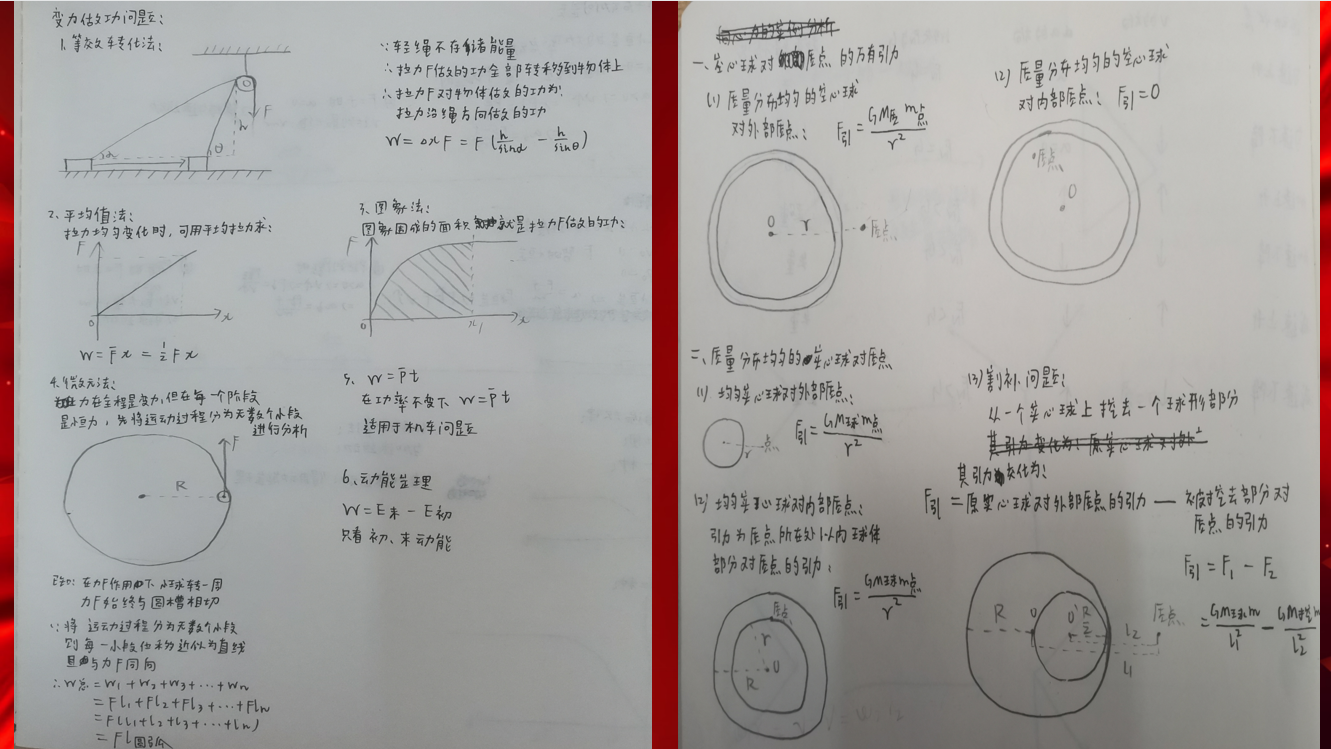 变力做功问题:
1.等效转化法:
∵轻绳不存储能量
∴拉力F做的功全部转移到物体上
∴拉力F对物体做的功为:
拉力沿绳方向做的功
W=△xF=F(h/sinα - h/sinθ)
F
h
α
θ
2、平均值法:
拉力均匀变化时,可用平均拉力求:
F
0
x
W=F̄x=½Fx
3、图象法:
图象围成的面积就是拉力F做的功:
F
0
x1
x
4.微元法:
力在全程是变力,但在每一个阶段
是恒力,先将运动过程分为无数个小段
进行分析
F
R
已知:在力F作用下小球转一周
力F始终与圆槽相切
∵将运动过程分为无数个小段
则每一小段位移近似为直线
且与力F同向
∴W总=W1+W2+W3+…+Wn
=Fl1+Fl2+Fl3+…+Fln
=F(l1+l2+l3+…+ln)
=Fl圆弧
5、W=P̄t
在功率不变下 W=P̄t
适用于机车问题
6、动能定理
W=E末-E初
只看初、末动能
一、空心球对质点的万有引力
(1)质量分布均匀的空心球
对外部质点:
F引=GM壳m点/r²
O
r
质点
(2)质量分布均匀的空心球
对内部质点: F引=0
质点
O
二、质量分布均匀的实心球对质点
(1)均匀实心球对外部质点:
F引=GM球m点/r²
r
点
(2)均匀实心球对内部质点:
引力为质点所在处以内球体
部分对质点的引力:
F引=GM球m点/r²
质点
r
O
R
(3)割补问题:
从一个实心球上挖去一个球形部分
其引力变化为:
F引=原实心球对外部质点的引力 — 被挖去部分对
质点的引力
F引=F1-F2
=GM球m/l1² - GM挖m/l2²
R
O
O'
R/2
r
质点
l2
l1